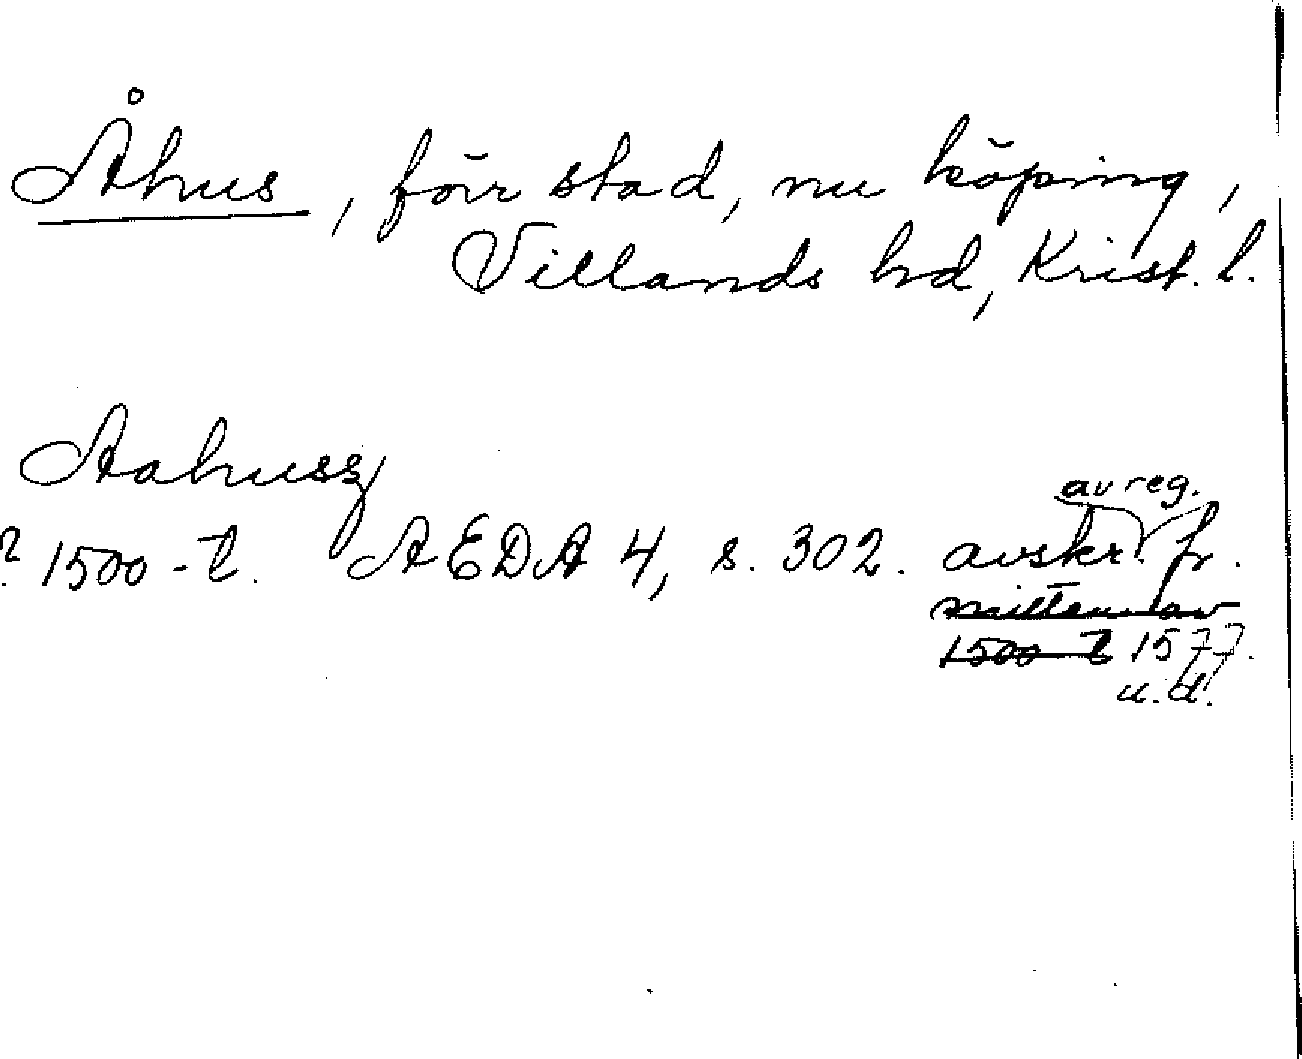 Åhus, förr stad, nu köping,
Villands hd, Krist. l.
Aahussz
? 1500-t. AEDA 4, s. 302. avskr. av reg. fr.
mitten av
1500-t 1577.
u.d.